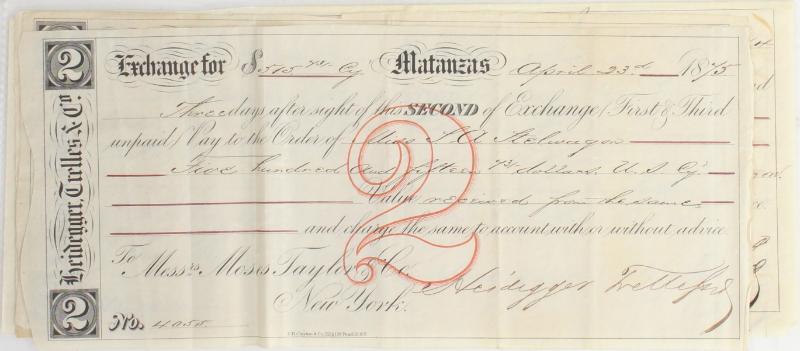 2
Heidegger, Trelles & Co.
2
Exchange for $515 Cy Matanzas April 23d 1875
Three days after sight of this SECOND of Exchange (First & Third
unpaid) Pay to the Order of Miss S. A. Stelwagon
Five hundred and fifteen dollars U. S. Cy
Value received from the same
and charge the same to account with or without advice
To Messrs Moses Taylor & Co.
New York.
Heidegger Trelles
No. 4055
2